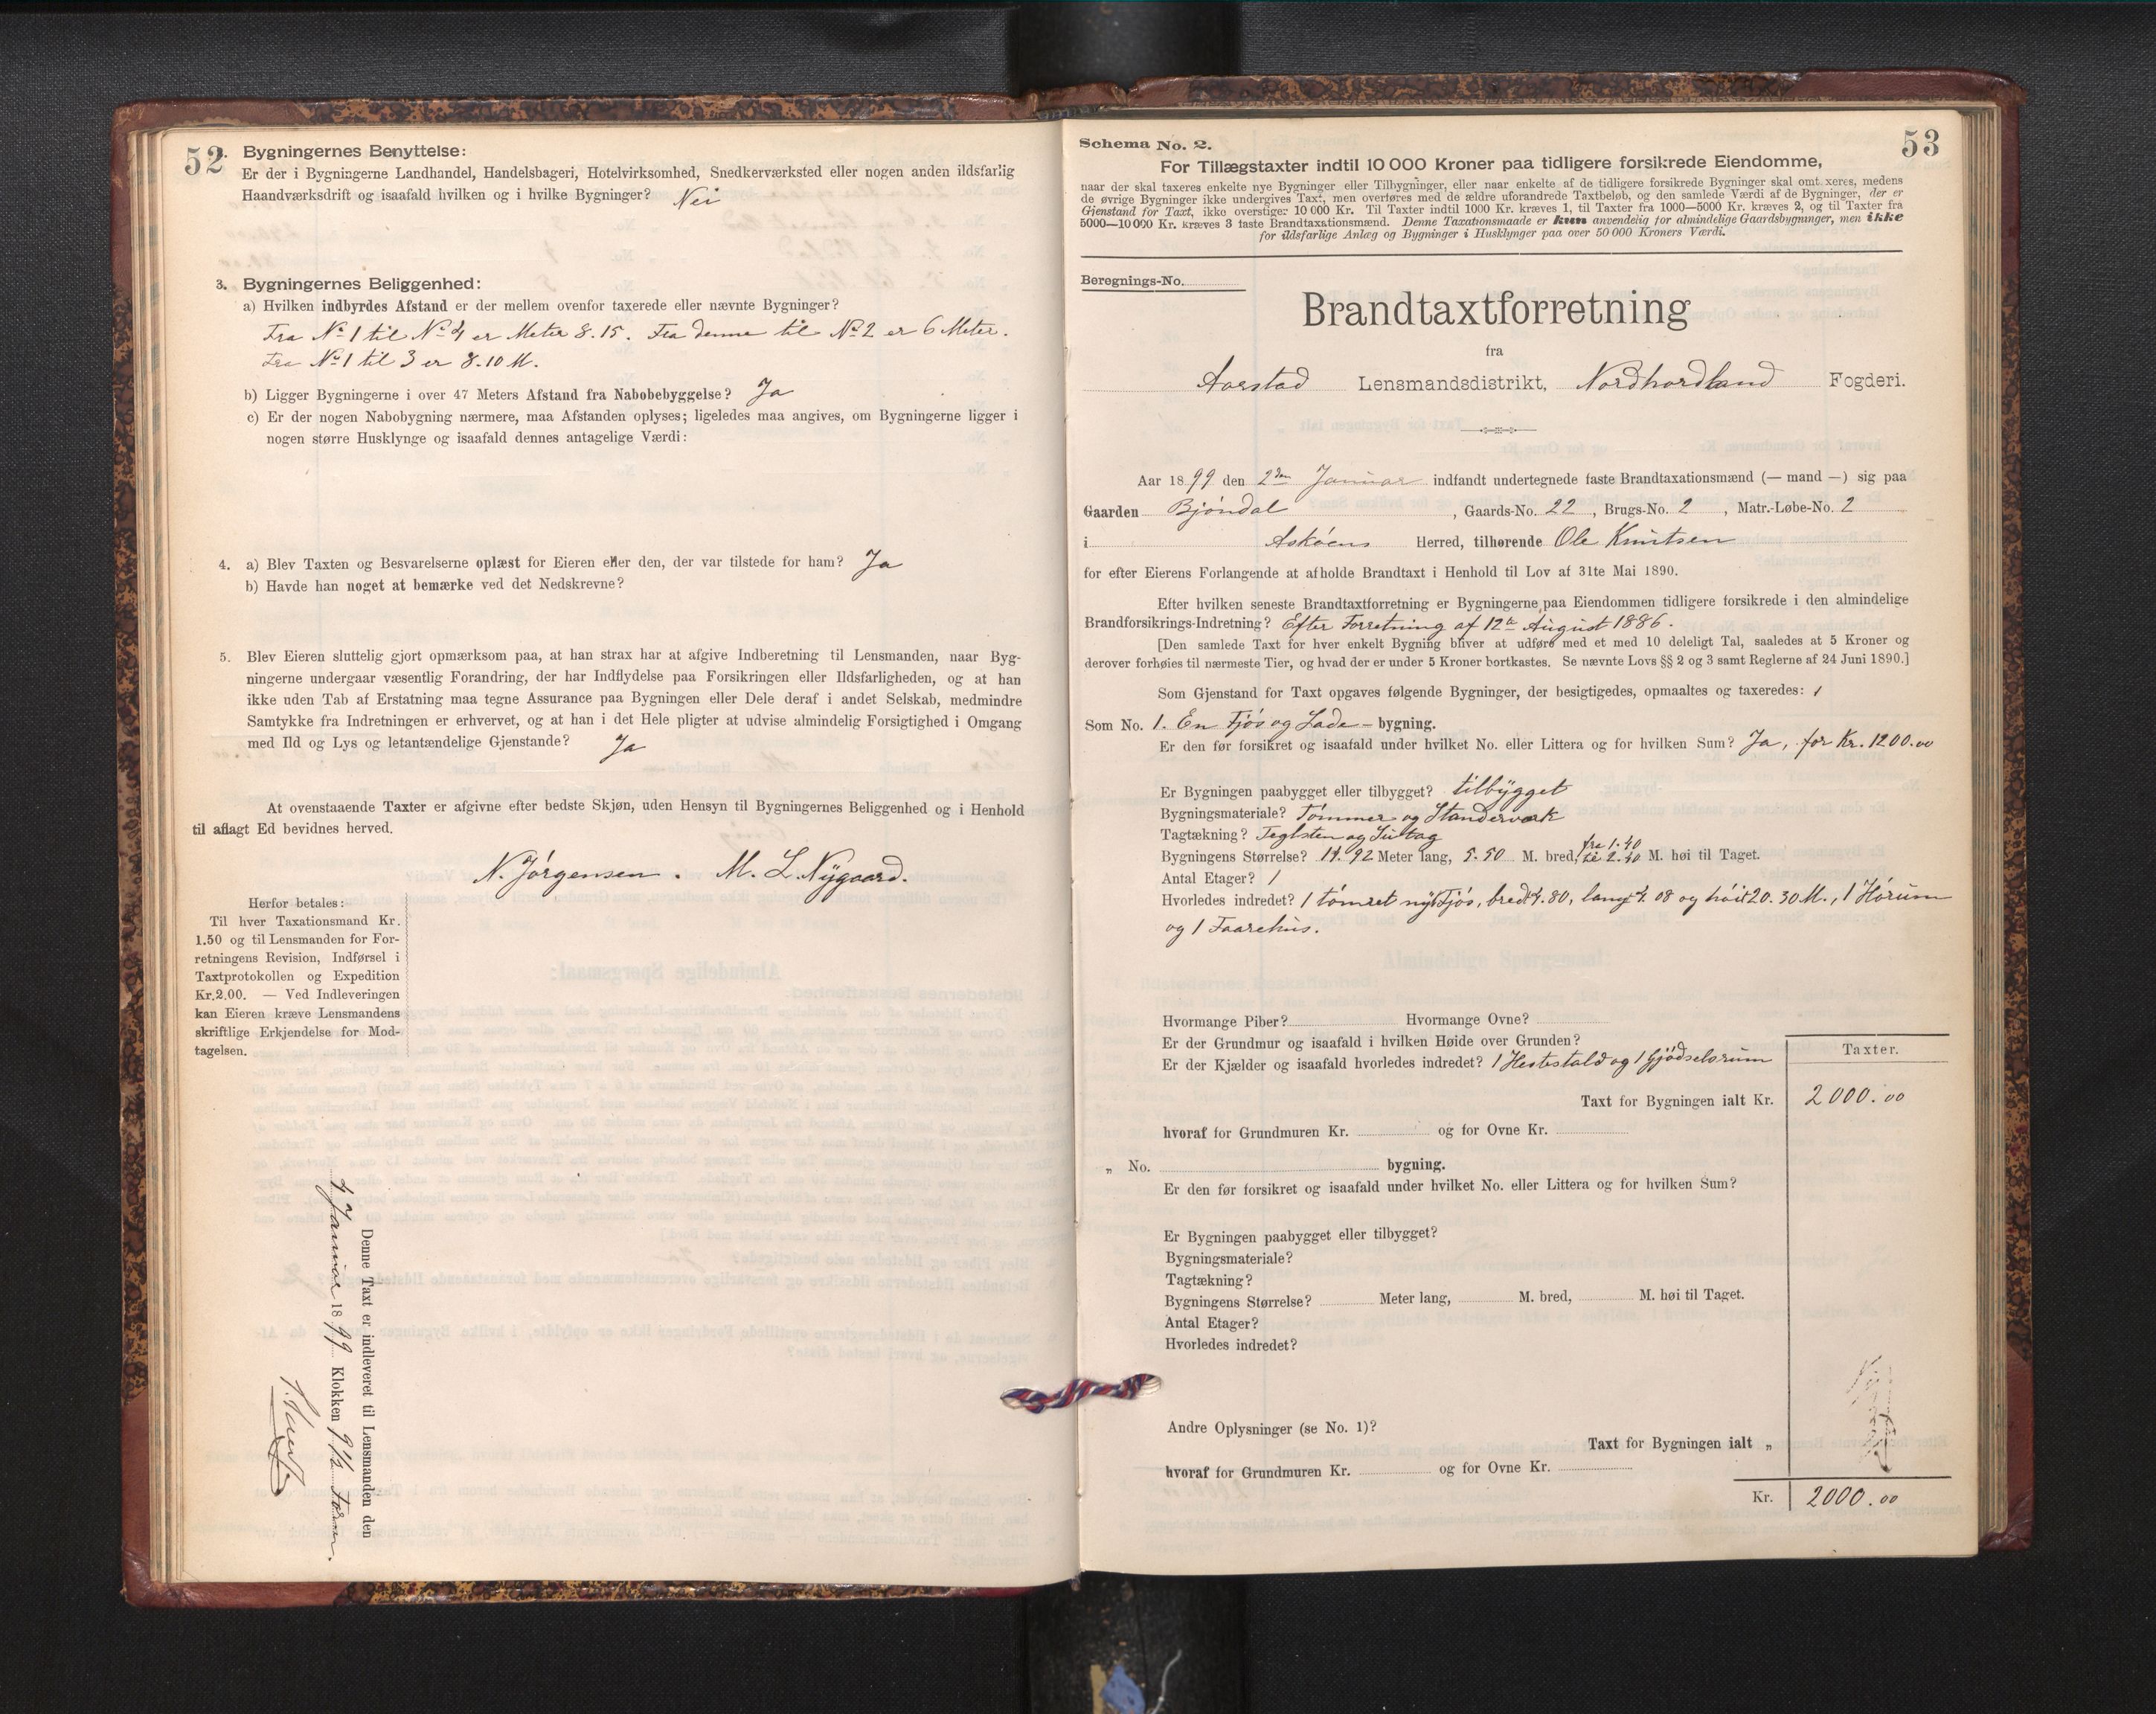 52
2. Bygningernes Benyttelse:
Er der i Bygningerne Landhandel, Handelsbageri, Hotelvirksomhed, Snedkerværksted eller nogen anden ildsfarlig
Haandværksdrift og isaafald hvilken og i hvilke Bygninger? Nei
3. Bygningernes Beliggenhed:
a) Hvilken indbyrdes Afstand er der mellem ovenfor taxerede eller nævnte Bygninger?
Fra No 1 til No 4 er Meter 8.15. Fra denne til No 2 er 6 Meter.
Fra No 1 til 3 er 8.10 M.
b) Ligger Bygningerne i over 47 Meters Afstand fra Nabobebyggelse? Ja
c) Er der nogen Nabobygning nærmere, maa Afstanden oplyses; ligeledes maa angives, om Bygningerne ligger i
nogen større Husklynge og isaafald dennes antagelige Værdi:
4. a) Blev Taxten og Besvarelserne oplæst for Eieren eller den, der var tilstede for ham? Ja
b) Havde han noget at bemærke ved det Nedskrevne?
5. Blev Eieren sluttelig gjort opmærksom paa, at han strax har at afgive Indberetning til Lensmanden, naar Byg-
ningerne undergaar væsentlig Forandring, der har Indflydelse paa Forsikringen eller Ildsfarligheden, og at han
ikke uden Tab af Erstatning maa tegne Assurance paa Bygningen eller Dele deraf i andet Selskab, medmindre
Samtykke fra Indretningen er erhvervet, og at han i det Hele pligter at udvise almindelig Forsigtighed i Omgang
med Ild og Lys og letantændelige Gjenstande? Ja
At ovenstaaende Taxter er afgivne efter bedste Skjøn, uden Hensyn til Bygningernes Beliggenhed og i Henhold
til aflagt Ed bevidnes herved.
N. Jørgensen. M. L. Nygaard.
Herfor betales:
Til hver Taxationsmand Kr.
1.50 og til Lensmanden for For-
retningens Revision, Indførsel i
Taxtprotokollen og Expedition
Kr.2.00. — Ved Indleveringen
kan Eieren kræve Lensmandens
skriftlige Erkjendelse for Mod-
tagelsen.
Denne Taxt er indleveret til Lensmanden den
4 Januar 1899 Klokken 9 1/2 form.
53
Schema No. 2.
For Tillægstaxter indtil 10 000 Kroner paa tidligere forsikrede Eiendomme,
naar der skal taxeres enkelte nye Bygninger eller Tilbygninger, eller naar enkelte af de tidligere forsikrede Bygninger skal omtaxeres, medens
de øvrige Bygninger ikke undergives Taxt, men overføres med de ældre uforandrede Taxtbeløb, og den samlede Værdi af de Bygninger, der er
Gjenstand for Taxt, ikke overstiger 10 000 Kr. Til Taxter indtil 1000 Kr. kræves 1, til Taxter fra 1000—5000 Kr. kræves 2, og til Taxter fra
5000—10 000 Kr. kræves 3 faste Brandtaxationsmænd. Denne Taxationsmaade er kun anvendelig for almindelige Gaardsbygninger, men ikke
for ildsfarlige Anlæg og Bygninger i Husklynger paa over 50 000 Kroners Værdi.
Beregnings-No.
Brandtaxtforretning
fra
Aarstad Lensmandsdistrikt, Nordhordland Fogderi.
Aar 1899 den 2den Januar indfandt undertegnede faste Brandtaxationsmænd (— mand —) sig paa
Gaarden Bjöndal, Gaards-No. 22, Brugs-No. 2, Matr.-Løbe-No. 2
i Asköens Herred, tilhørende Ole Knutsen
for efter Eierens Forlangende at afholde Brandtaxt i Henhold til Lov af 31te Mai 1890.
Efter hvilken seneste Brandtaxtforretning er Bygningerne paa Eiendommen tidligere forsikrede i den almindelige
Brandforsikrings-Indretning? Efter Forretning af 12te August 1886.
[Den samlede Taxt for hver enkelt Bygning bliver at udføre med et med 10 deleligt Tal, saaledes at 5 Kroner og
derover forhøies til nærmeste Tier, og hvad der er under 5 Kroner bortkastes. Se nævnte Lovs §§ 2 og 3 samt Reglerne af 24 Juni 1890.]
Som Gjenstand for Taxt opgaves følgende Bygninger, der besigtigedes, opmaaltes og taxeredes: 1
Som No. 1. En Fjös og Lade-bygning.
Er den før forsikret og isaafald under hvilket No. eller Littera og for hvilken Sum? Ja, for Kr. 1200.00
Er Bygningen paabygget eller tilbygget? tilbygget
Bygningsmateriale? Tømmer og Standerværk
Tagtækning? Teglsten og Sutag
Bygningens Størrelse? 14.92 Meter lang, 5.50 M. bred, fra 1.40 til 2.40 M. høi til Taget.
Antal Etager? 1
Hvorledes indredet? 1 tømret nyt Fjös, bredt 4.80, langt 4.08 og høit 20.30 M., 1 Hørum
og 1 Faarehus.
Hvormange Piber? Hvormange Ovne?
Er der Grundmur og isaafald i hvilken Høide over Grunden?
Er der Kjælder og isaafald hvorledes indredet? 1 Hestestald og 1 Gjødselsrum
Taxter.
Taxt for Bygningen ialt Kr. 2000.00
hvoraf for Grundmuren Kr. og for Ovne Kr.
„ No. bygning.
Er den før forsikret og isaafald under hvilket No. eller Littera og for hvilken Sum?
Er Bygningen paabygget eller tilbygget?
Bygningsmateriale?
Tagtækning?
Bygningens Størrelse? Meter lang, M. bred, M. høi til Taget.
Antal Etager?
Hvorledes indredet?
Andre Oplysninger (se No. 1)?
Taxt for Bygningen ialt „
hvoraf for Grundmuren Kr. og for Ovne Kr.
Kr. 2000.00